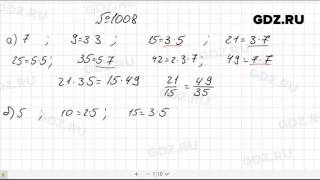 GDZ.RU
№1008
а) 7 ; 9=3·3 ; 15=3·5 ; 21=3·7
25=5·5; 35=5·7 42=2·3·7 ; 49=7·7
21·35=15·49 21/15=49/35
б) 5 ; 10=2·5 ; 15=3·5
1:10